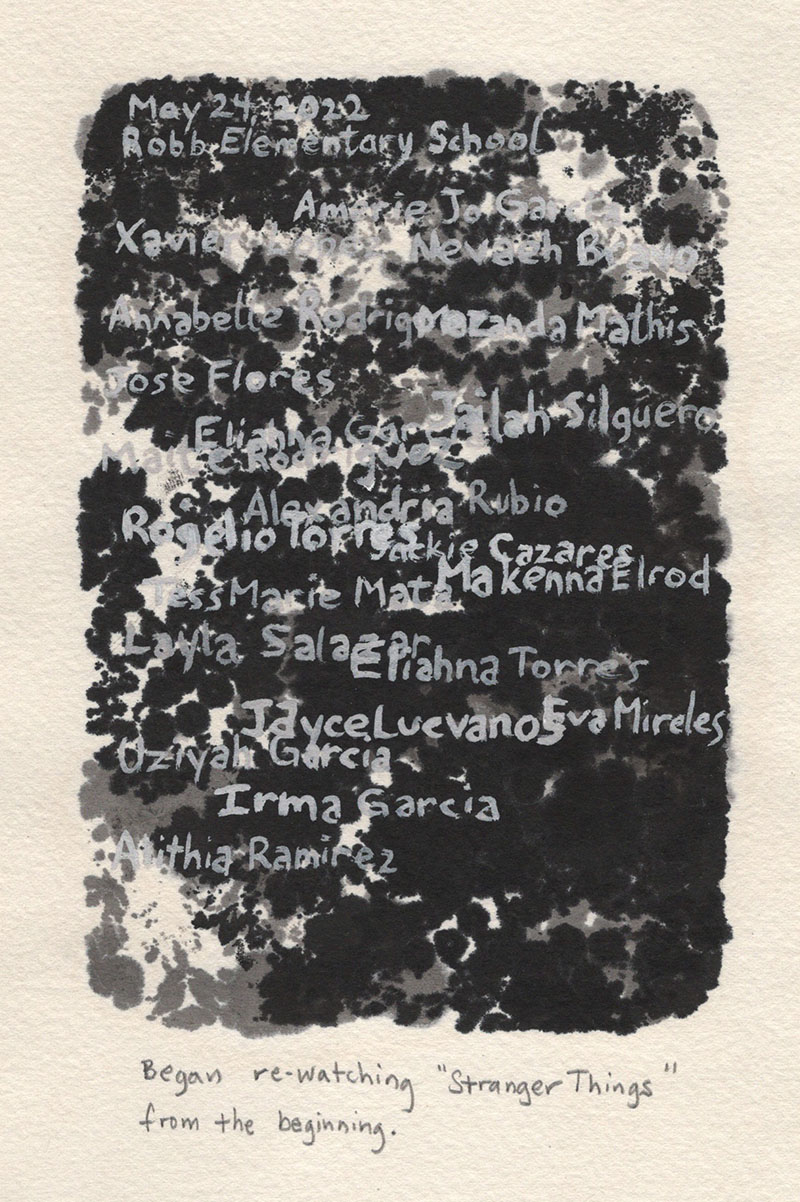 May 24, 2022
Robb Elementary School
Amerie Jo Garza
Xavier Lopez Nevaeh Bravo
Annabelle Rodriguez Maranda Mathis
Jose Flores
Jailah Silguero
Eliahna Garcia
Maite Rodriguez
Alexandria Rubio
Rogelio Torres
Jackie Cazares
Makenna Elrod
Tess Marie Mata
Layla Salazar
Eliahna Torres
Jayce Luevanos Eva Mireles
Uziyah Garcia
Irma Garcia
Alithia Ramirez
Began re-watching "Stranger Things"
from the beginning.